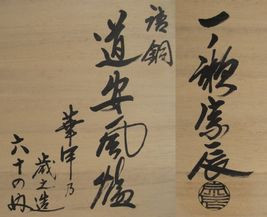 唐銅
道安風炉
華甲乃
歳之造
六十の内
一ノ瀬宗辰